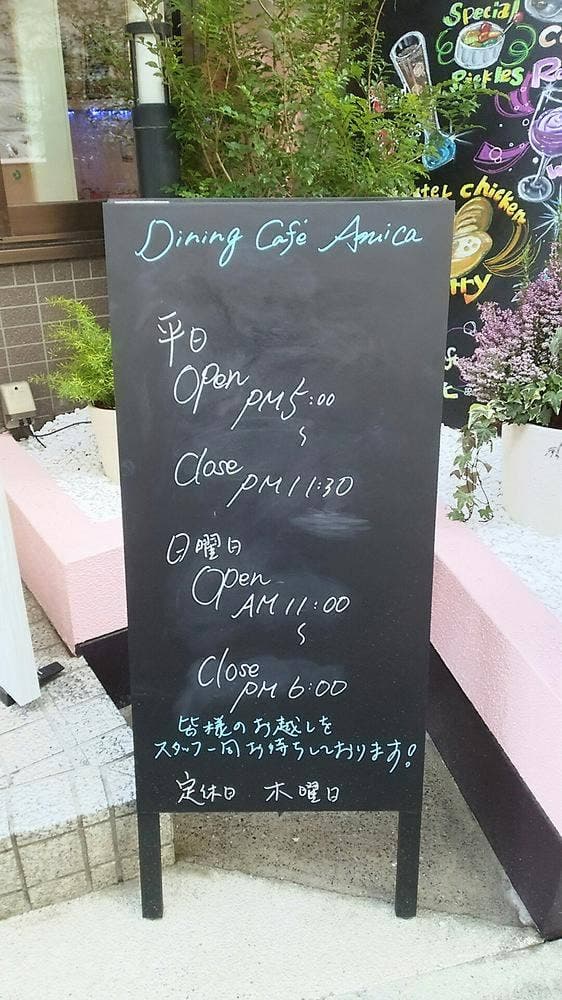 Special
Pickles
chicken
Dining Café Amica
平日
Open
PM 5:00
〜
Close
PM 11:30
日曜日
Open
AM 11:00
〜
Close
PM 6:00
皆様のお越しを
スタッフ一同お待ちしております!
定休日 木曜日